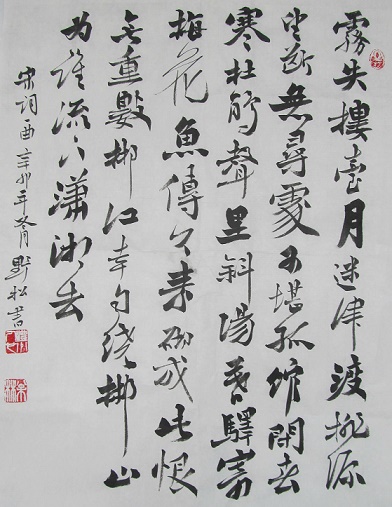 霧失樓臺月迷津渡桃源
望断無尋處可堪孤館閉春
寒杜鹃聲里斜陽暮驛寄
梅花魚傳尺素砌成此恨
无重數郴江幸自绕郴山
为誰流下瀟湘去
宋词一曲辛卯年冬月野松書